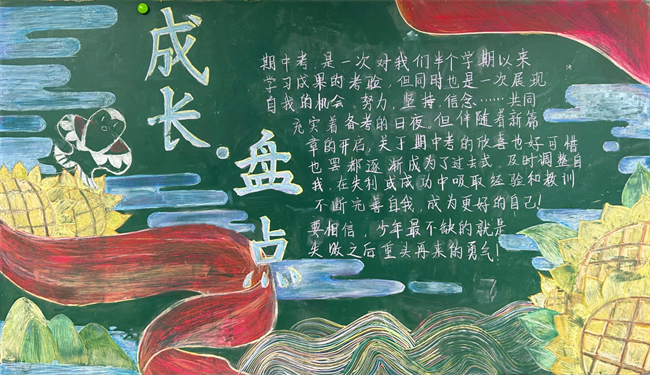 成长·盘点
期中考,是一次对我们半个学期以来
学习成果的考验,但同时也是一次展现
自我的机会。努力,坚持,信念……共同
充实着备考的日夜。但伴随着新篇
章的开启,关于期中考的欣喜也好可惜
也罢都逐渐成为了过去式,及时调整自
我,在失利或成功中吸取经验和教训
不断完善自我,成为更好的自己!
要相信,少年最不缺的就是
失败之后重头再来的勇气!